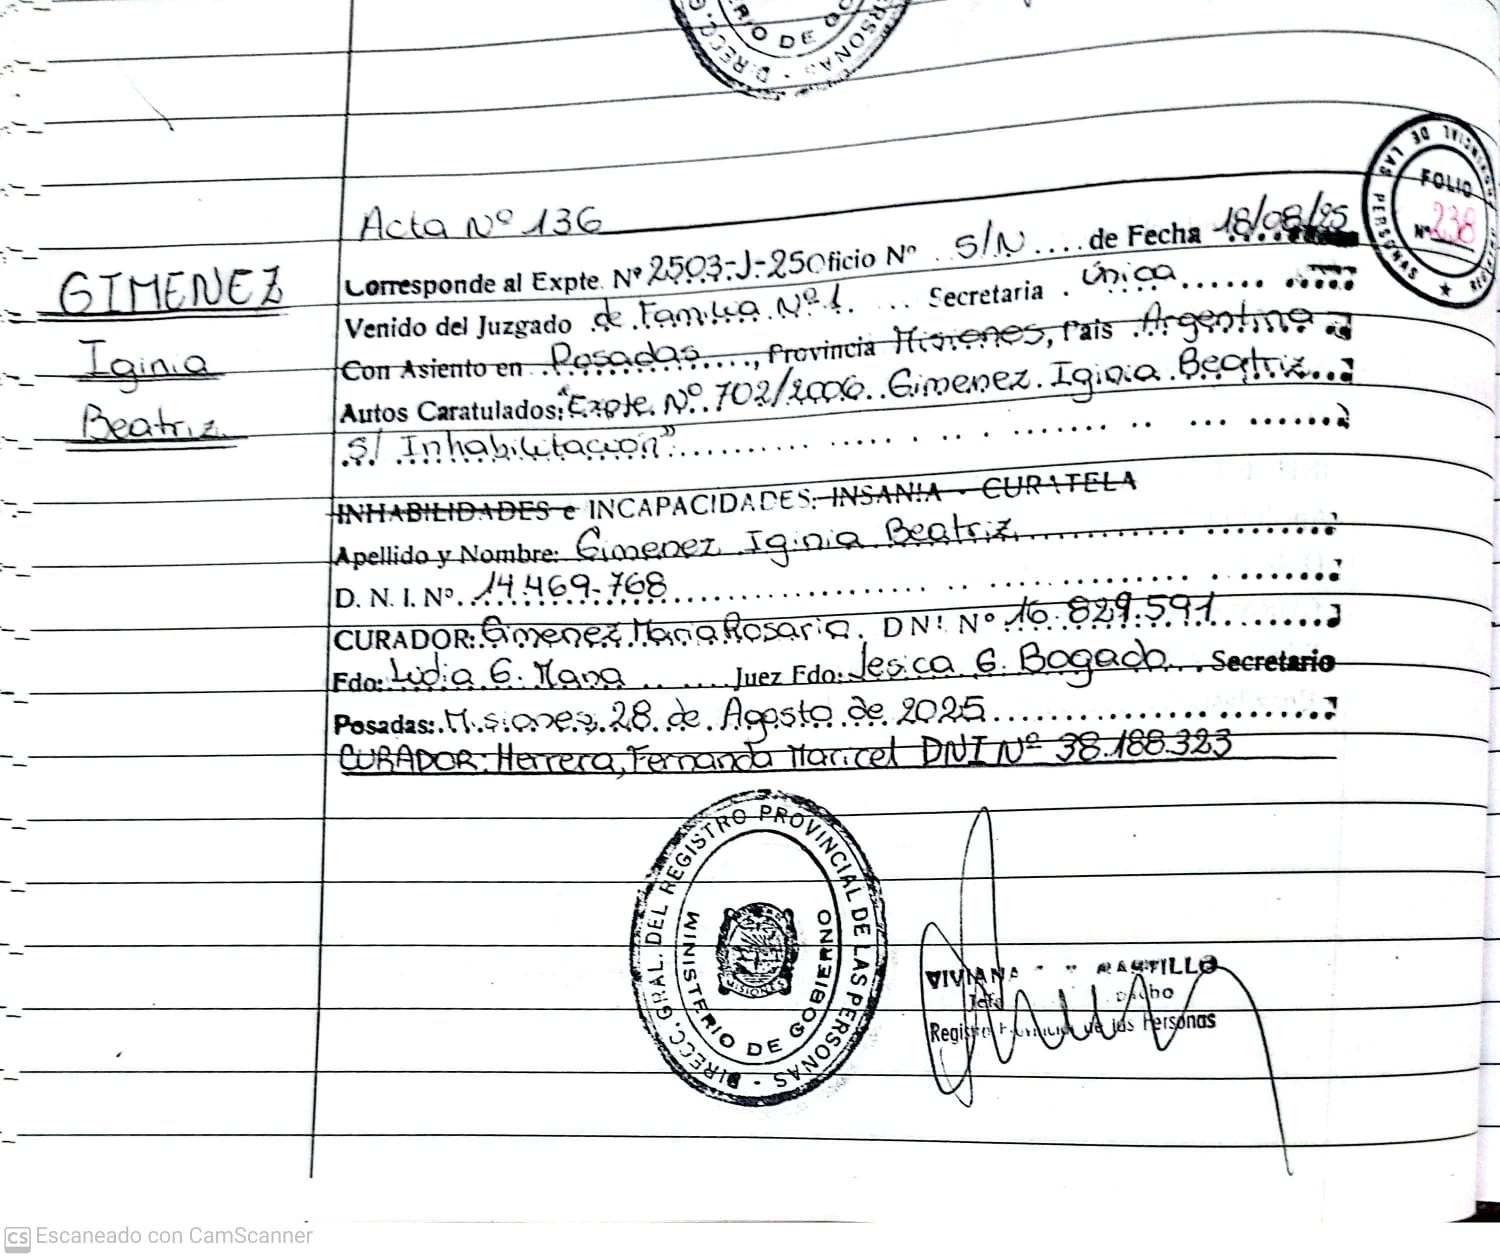 RIO DE GO
DIRECC. G PERSONAS
Acta Nº 136
FOLIO
Nº 238
PROVINCIAL DE LAS PERSONAS
GIMENEZ
Iginia
Beatriz
Corresponde al Expte. Nº 2503-J-25 Oficio Nº S/N.... de Fecha 18/08/25
Venido del Juzgado de Familia Nº 1. ... Secretaria . Única
Con Asiento en . Posadas ...., Provincia Misiones, Pais Argentina
Autos Caratulados: "Expte. Nº 702/2006. Gimenez Iginia Beatriz
S/ Inhabilitación"
INHABILIDADES e INCAPACIDADES. INSANIA - CURATELA
Apellido y Nombre: Gimenez Iginia Beatriz
D. N. I. Nº. 14.469.768
CURADOR: Gimenez Maria Rosaria. DNI Nº 16.829.591
Fdo: Lidia G. Juez Fdo: Jesica G. Bogado... Secretario
Posadas: Misiones, 28 de Agosto de 2025
CURADOR: Herrera, Fernanda Maricel DNI Nº 38.188.323
DIRECC. GRAL. DEL REGISTRO PROVINCIAL DE LAS PERSONAS
MINISTERIO DE GOBIERNO
MISIONES
VIVIANA CASTILLO
Jefe
Registro Provincial de las Personas
CS Escaneado con CamScanner